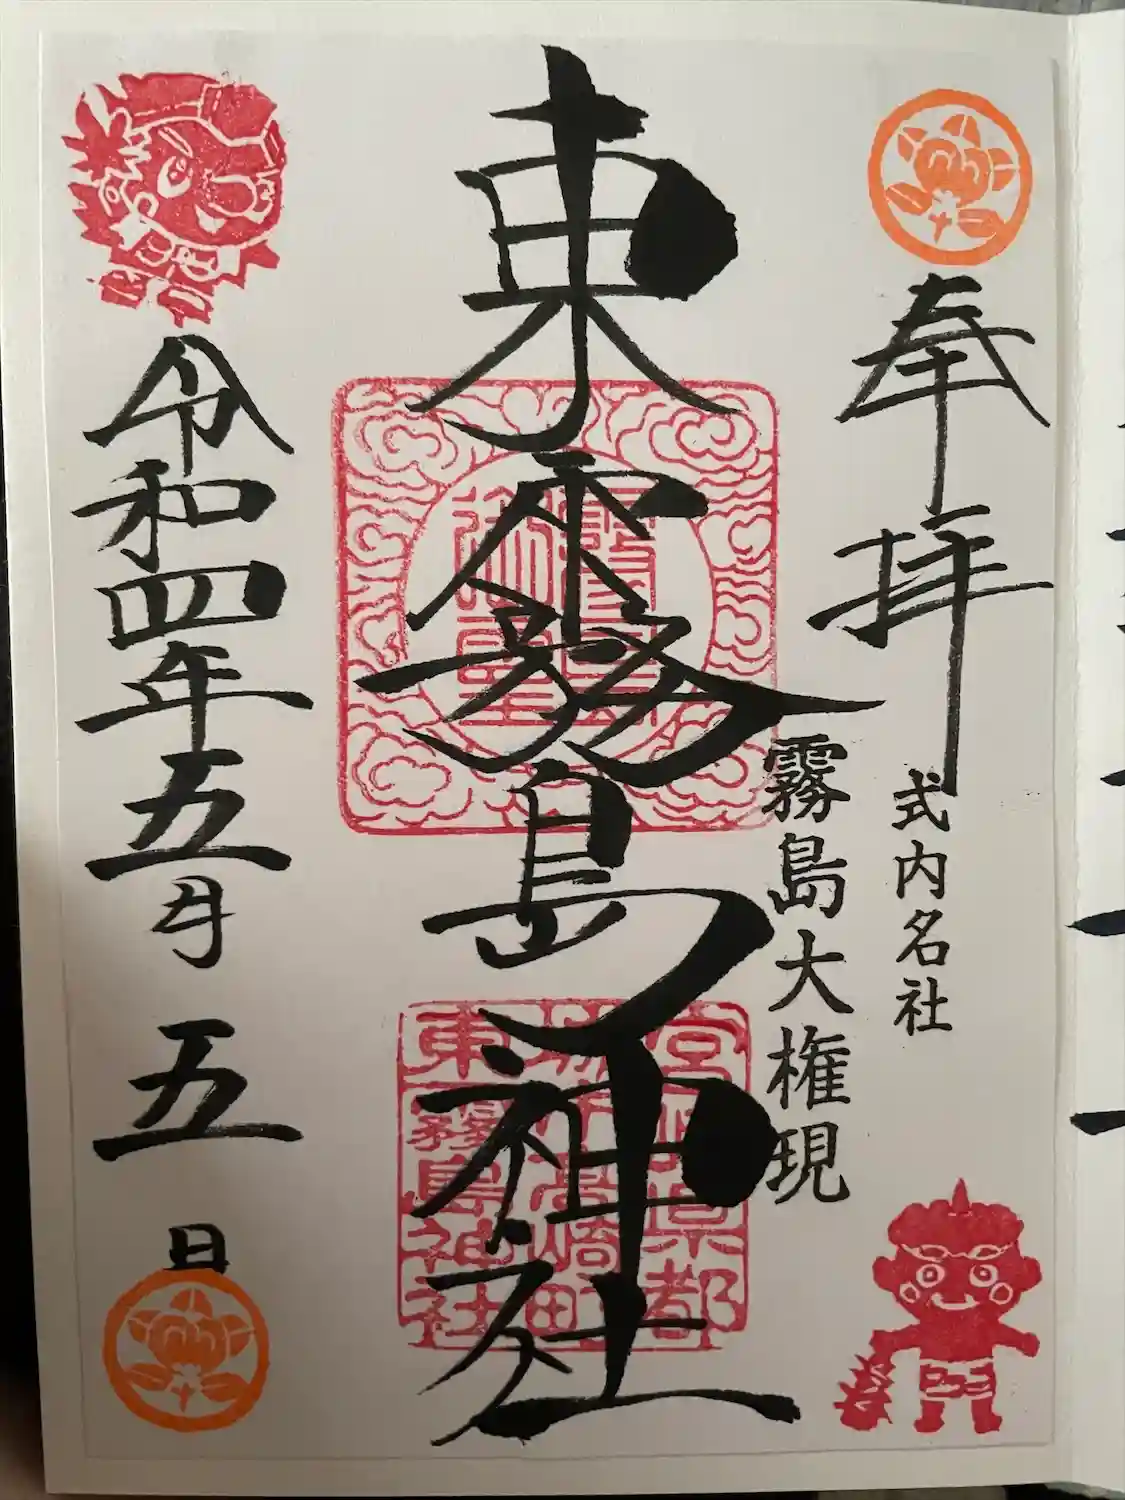 奉拝
式内名社
霧島大権現
東霧島神社
宮崎県都
城市高崎町
東霧島神社
令和四年五月五日